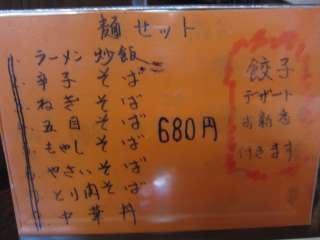 麺セット
ラーメン 炒飯
辛子そば
ねぎそば
五目そば
もやしそば
やさいそば
とり肉そば
中華丼
680円
餃子
デザート
お新香
付きます